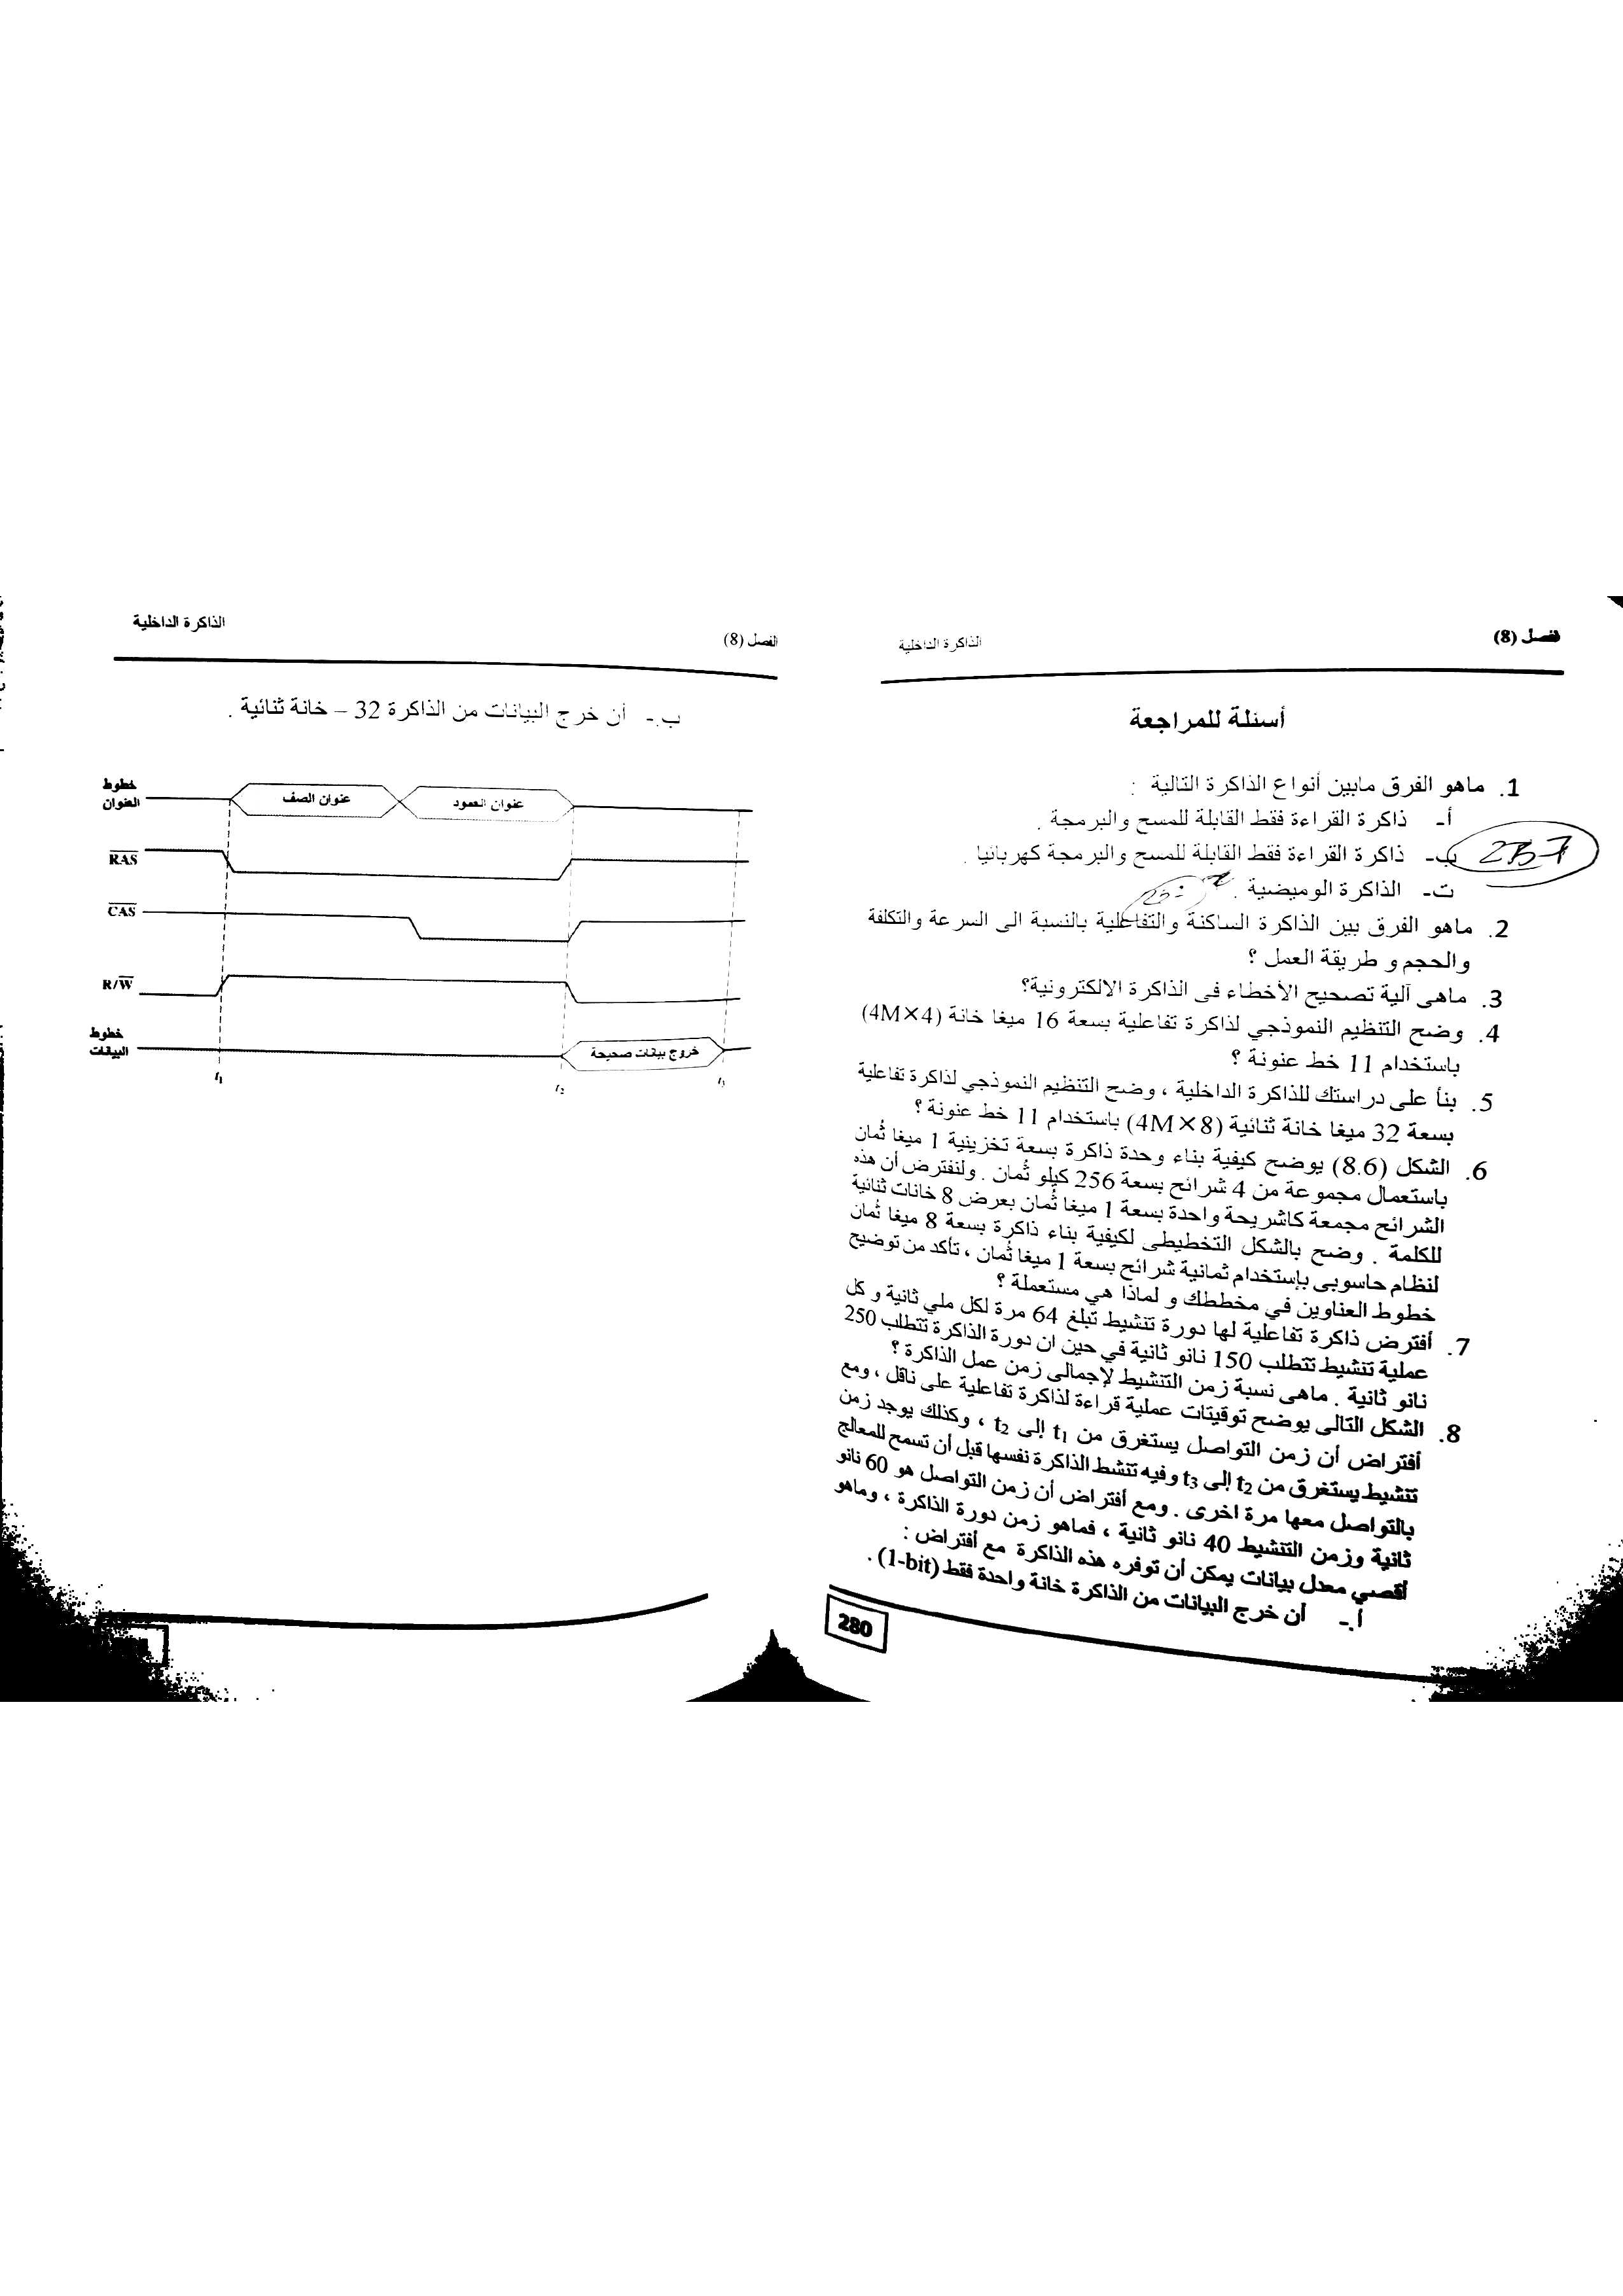 الفصل (8)
الذاكرة الداخلية
أسئلة للمراجعة
1. ماهو الفرق مابين أنواع الذاكرة التالية :
أ- ذاكرة القراءة فقط القابلة للمسح والبرمجة .
ب- ذاكرة القراءة فقط القابلة للمسح والبرمجة كهربائيا .
ت- الذاكرة الوميضية .
2. ماهو الفرق بين الذاكرة الساكنة والتفاعلية بالنسبة الى السرعة والتكلفة
والحجم و طريقة العمل ؟
3. ماهى آلية تصحيح الأخطاء فى الذاكرة الالكترونية؟
4. وضح التنظيم النموذجي لذاكرة تفاعلية بسعة 16 ميغا خانة (4M×4)
باستخدام 11 خط عنونة ؟
5. بنأ على دراستك للذاكرة الداخلية ، وضح التنظيم النموذجي لذاكرة تفاعلية
بسعة 32 ميغا خانة ثنائية (4M×8) باستخدام 11 خط عنونة ؟
6. الشكل (8.6) يوضح كيفية بناء وحدة ذاكرة بسعة تخزينية 1 ميغا ثُمان
باستعمال مجموعة من 4 شرائح بسعة 256 كيلو ثُمان . ولنفترض أن هذه
الشرائح مجمعة كاشريحة واحدة بسعة 1 ميغا ثُمان بعرض 8 خانات ثنائية
للكلمة . وضح بالشكل التخطيطى لكيفية بناء ذاكرة بسعة 8 ميغا ثُمان
لنظام حاسوبى بإستخدام ثمانية شرائح بسعة 1 ميغا ثُمان ، تأكد من توضيح
خطوط العناوين في مخططك و لماذا هي مستعملة ؟
7. أفترض ذاكرة تفاعلية لها دورة تنشيط تبلغ 64 مرة لكل ملي ثانية و كل
عملية تنشيط تتطلب 150 نانو ثانية في حين ان دورة الذاكرة تتطلب 250
نانو ثانية . ماهى نسبة زمن التنشيط لإجمالى زمن عمل الذاكرة ؟
8. الشكل التالى يوضح توقيتات عملية قراءة لذاكرة تفاعلية على ناقل ، ومع
أفتراض أن زمن التواصل يستغرق من t1 إلى t2 ، وكذلك يوجد زمن
تنشيط يستغرق من t2 إلى t3 وفيه تنشط الذاكرة نفسها قبل أن تسمح للمعالج
بالتواصل معها مرة اخرى . ومع أفتراض أن زمن التواصل هو 60 نانو
ثانية وزمن التنشيط 40 نانو ثانية ، فماهو زمن دورة الذاكرة ، وماهو
أقصي معدل بيانات يمكن أن توفره هذه الذاكرة مع أفتراض :
أ.- أن خرج البيانات من الذاكرة خانة واحدة فقط (1-bit) .
280
الفصل (8)
الذاكرة الداخلية
ب.- أن خرج البيانات من الذاكرة 32 – خانة ثنائية .
خطوط
العنوان
عنوان الصف
عنوان العمود
RAS
CAS
R/W
خطوط
البيانات
خروج بيانات صحيحة
t1
t2
t3